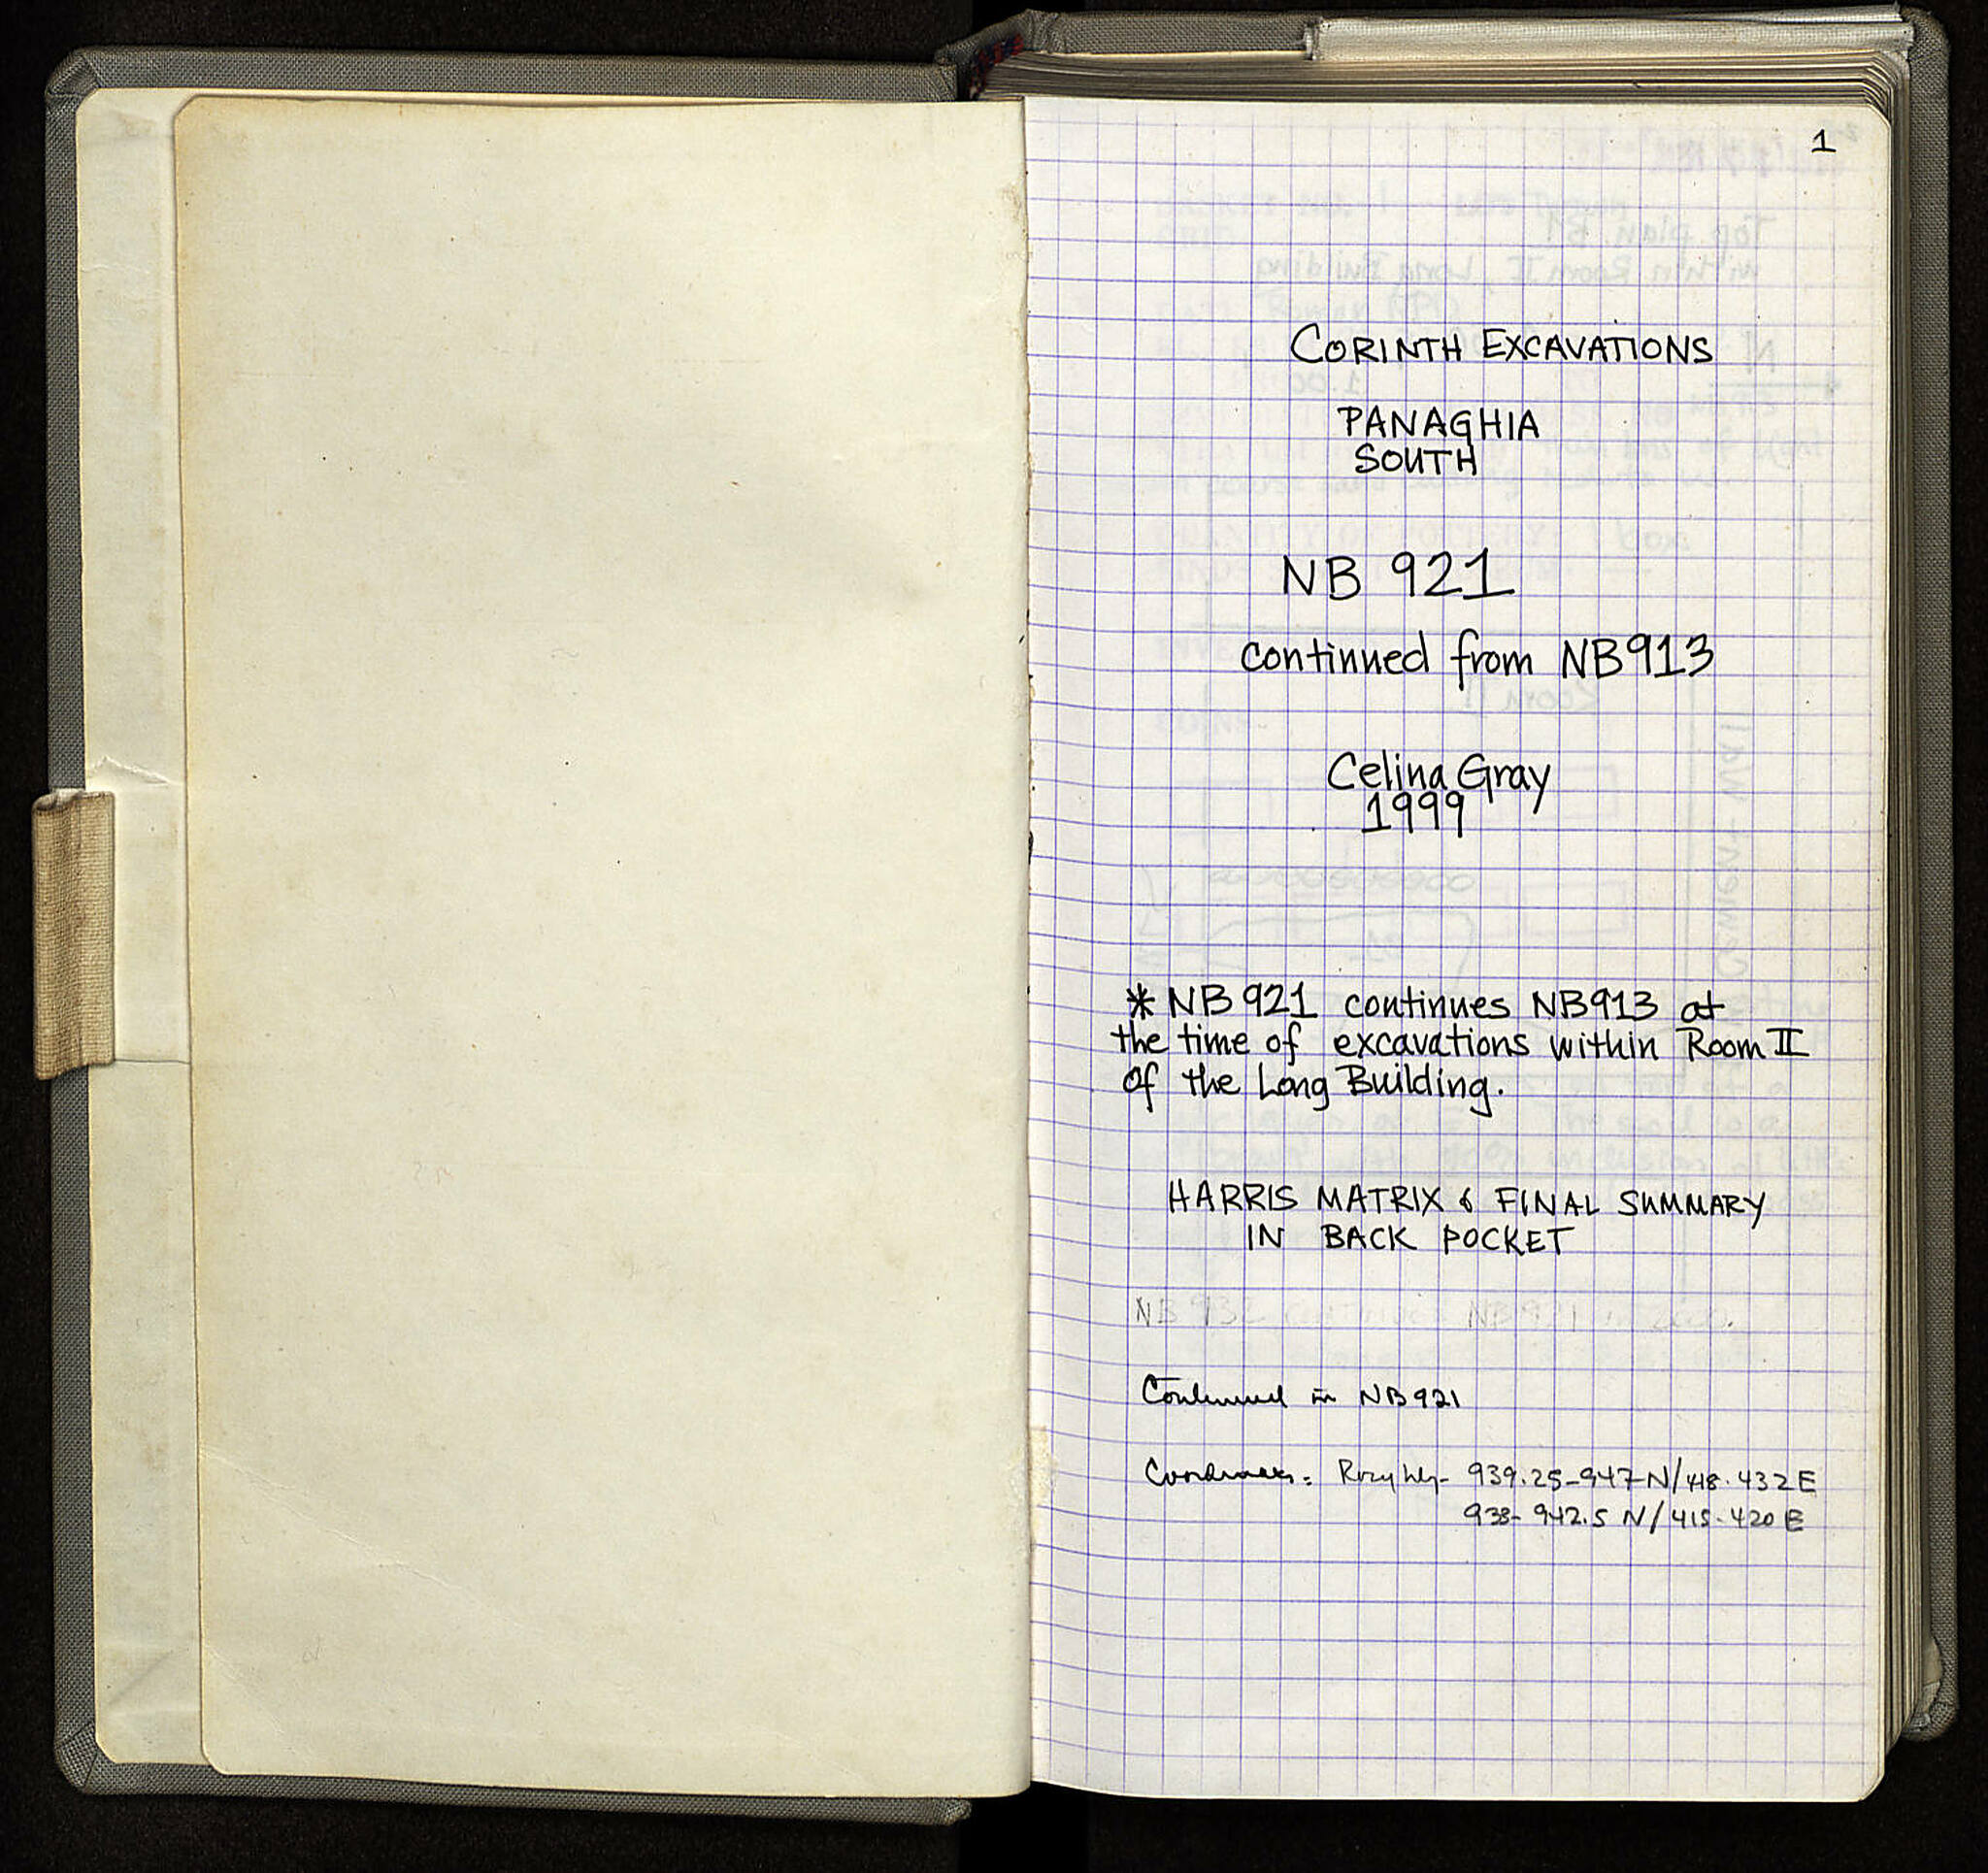 1
CORINTH EXCAVATIONS
PANAGHIA
SOUTH
NB 921
continued from NB913
Celina Gray
1999
* NB 921 continues NB913 at
the time of excavations within Room II
of the Long Building.
HARRIS MATRIX & FINAL SUMMARY
IN BACK POCKET
NB 932 continues NB 921 in 2000.
Continued in NB921
Coordinates: Roughly 939.25-947 N/418-432 E
938-942.5 N/415-420 E